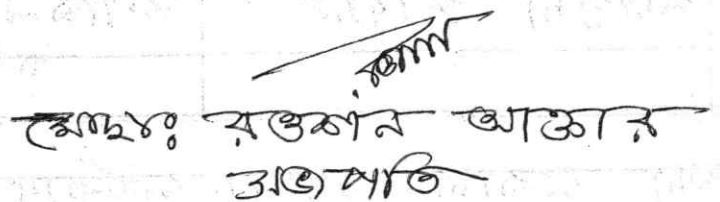 মোছাঃ রওশন আক্তার
সভাপতি